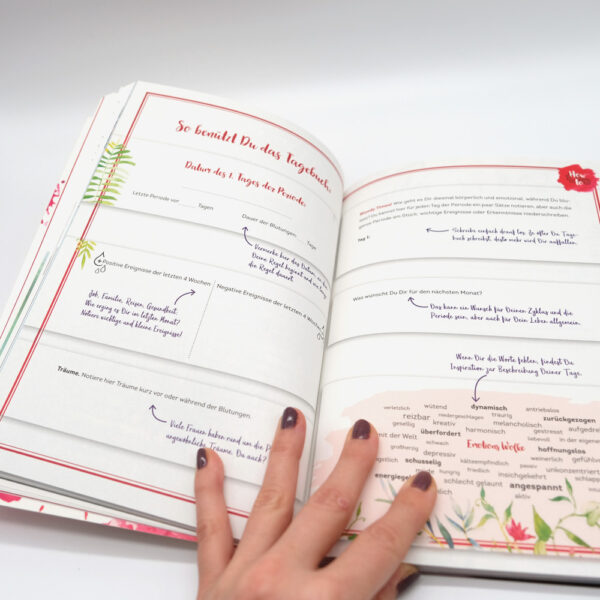 So benützt Du das Tagebuch.
Datum des 1. Tages der Periode.
Letzte Periode vor Tagen
Dauer der Blutungen: Tage
Vermerke hier das Datum, an dem
Deine Regel beginnt und wie lang
die Regel dauert.
Positive Ereignisse der letzten 4 Wochen
Job, Familie, Reisen, Gesundheit.
Wie erging es Dir im letzten Monat?
Notiere wichtige und kleine Ereignisse!
Negative Ereignisse der letzten 4 Wochen
Träume. Notiere hier Träume kurz vor oder während der Blutungen.
Viele Frauen haben rund um die
ungewöhnliche Träume. Du auch?
How
to
Wie geht es Dir diesmal körperlich und emotional, während Du
Du kannst hier für jeden Tag der Periode ein paar Sätze notieren, aber auch die
ganze Periode am Stück: wichtige Ereignisse oder Erkenntnisse niederschreiben.
Tag 1:
Schreibe einfach drauf los. Je öfter Du Tage-
buch schreibst, desto mehr wird Dir auffallen.
Was wünscht Du Dir für den nächsten Monat?
Das kann ein Wunsch für Deinen Zyklus und die
Periode sein, aber auch für Dein Leben allgemein.
Wenn Dir die Worte fehlen, findest Du
Inspiration zur Beschreibung Deiner Tage.
verletzlich wütend dynamisch antriebslos
reizbar niedergeschlagen traurig zurückgezogen
gesellig kreativ melancholisch
mit der Welt überfordert harmonisch gestresst
liebevoll in der eigenen
großherzig schwach Emotions Wolke hoffnungslos
depressiv weinerlich
schusselig kälteempfindlich passiv unkonzentriert
müde hungrig friedlich insichgekehrt
schlecht gelaunt angespannt
aktiv